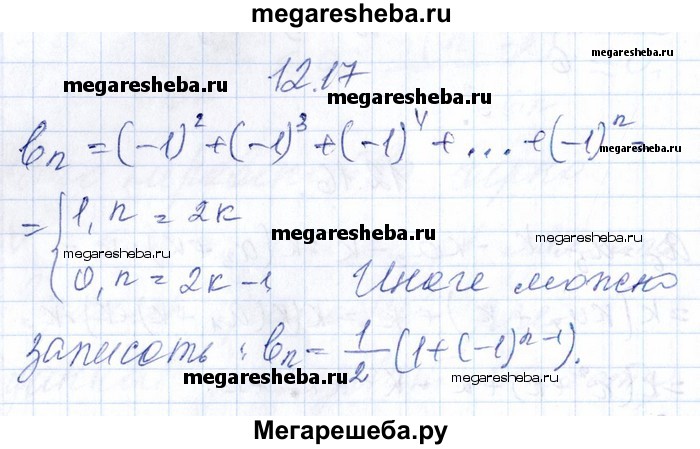 megaresheba.ru
12.17
megaresheba.ru
megaresheba.ru
megaresheba.ru
bₙ = (-1)² + (-1)³ + (-1)⁴ + ... + (-1)ⁿ =
megaresheba.ru
= { 1, n = 2k
megaresheba.ru
megaresheba.ru
megaresheba.ru
0, n = 2k-1 Иначе можно
записать: bₙ = 1/2 (1+(-1)ⁿ⁻¹).
megaresheba.ru
megaresheba.ru
Мегарешеба.ру